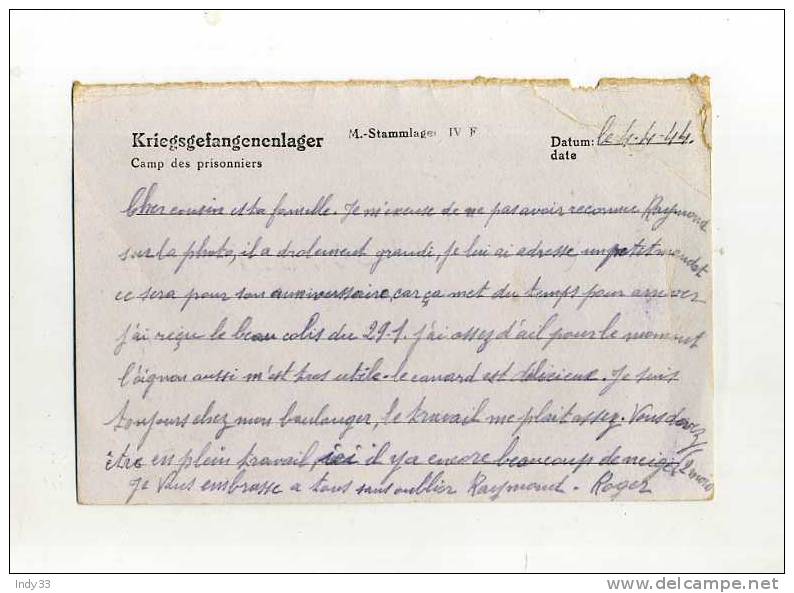 Kriegsgefangenenlager
M.-Stammlager IV F
Datum: le 4-4-44.
Camp des prisonniers
date
Cher cousin et ta famille. Je m'excuse de ne pas avoir reconnu Raymond
sur la photo, il a drolement grandi, je lui ai adressé un petit mandat
ce sera pour son anniversaire, car ça met du temps pour arriver
j'ai reçu le beau colis du 29-1. j'ai assez d'ail pour le moment
l'oignon aussi m'est tres utile - le canard est délicieux. Je suis
toujours chez mon boulanger, le travail me plait assez. Vous devez
être en plein travail, ici il y a encore beaucoup de neige
Je vous embrasse a tous sans oublier Raymond - Roger
Indy33
delcampe.net